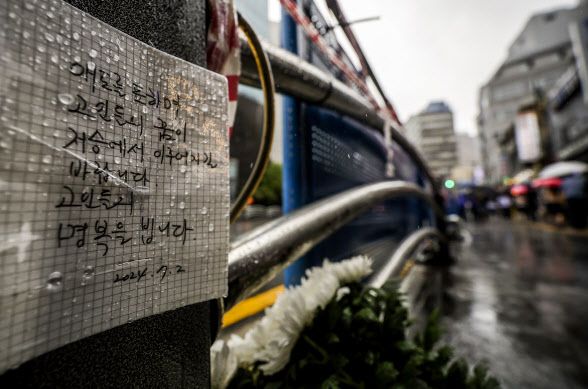 애도를 표하며
고인들의 꿈이
저승에서 이루어지길
바랍니다.
고인들의
명복을 빕니다.
2024. 7. 2